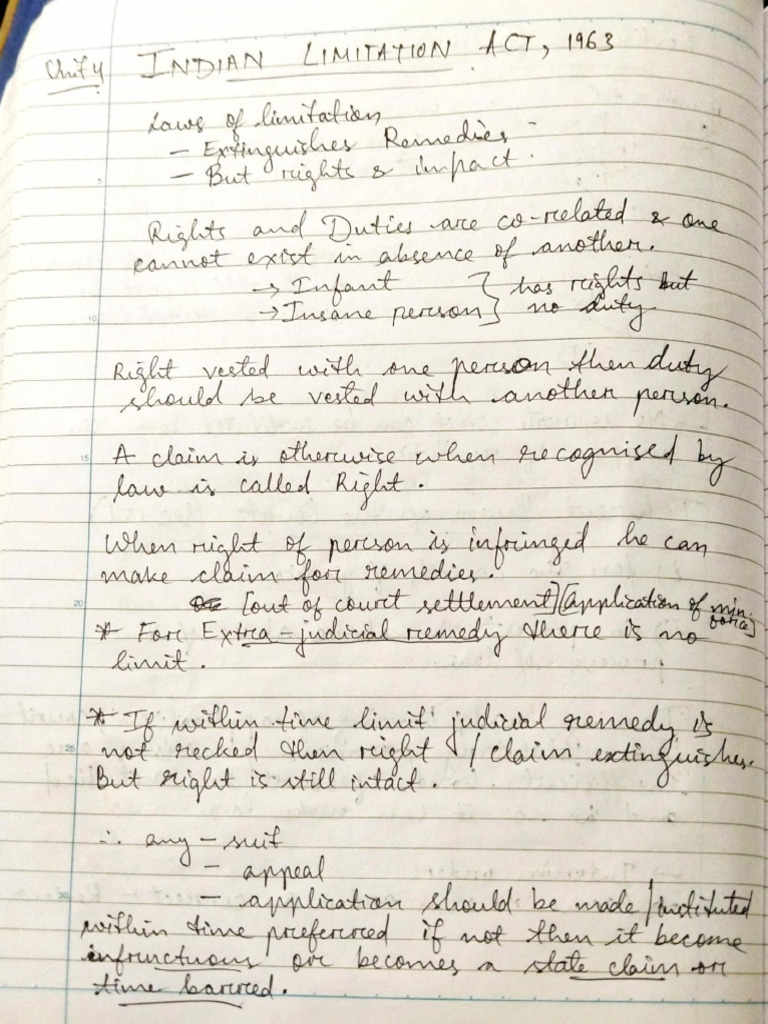 Unit 4 INDIAN LIMITATION ACT, 1963
Laws of limitation
- Extinguishes Remedies
- But rights & impact.
Rights and Duties are co-related & one
cannot exist in absence of another.
→ Infant } has rights but
→ Insane person } no duty
Right vested with one person then duty
should be vested with another person.
A claim is otherwise when recognised by
law is called Right.
When right of person is infringed he can
make claim for remedies.
[out of court settlement] [application of min. force]
* For Extra-judicial remedy there is no
limit.
* If within time limit judicial remedy is
not recked then right / claim extinguishes.
But right is still intact.
∴ any - suit
- appeal
- application should be made / instituted
within time preferred if not then it become
infructuous or becomes a state claim or
time barred.
5
10
15
20
25
30